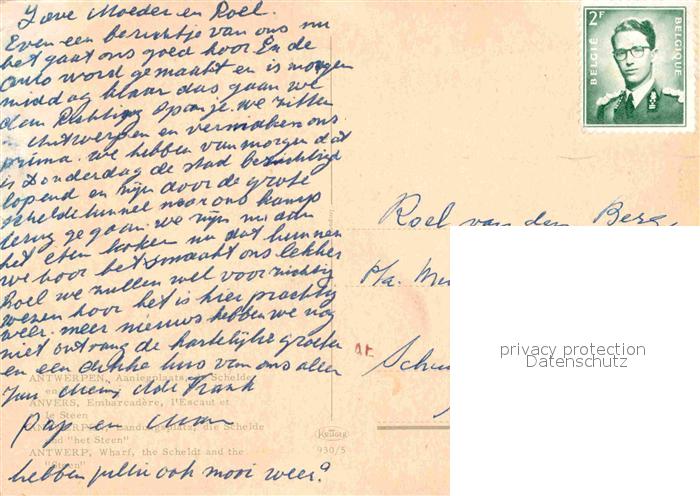 Lieve Moeder en Roel.
Even een berichtje van ons nu
het gaat ons goed hoor En de
Auto word gemaakt en is morgen
middag klaar das gaan we
dan Richting Spanje. we zitten
in Antwerpen en vermaken ons
prima. we hebben van morgen dat
is Donderdag de stad bezichtigd
lopend en zijn door de grote
scheldetunnel naar ons kamp
terug gegaan. we zijn nu aan
het eten koken nu dat kunnen
we hoor het smaakt ons lekker
Roel we zullen wel voorzichtig
wezen hoor het is hier prachtig
weer. meer nieuws hebben we nog
niet ontvang de hartelijke groeten
en een dikke kus van ons allen
Frank
Pap en Mam
hebben jullie ook mooi weer?
ANTWERPEN, Aanlegplaats, de Schelde
en
ANVERS, Embarcadère, l'Escaut et
le Steen
ANTWERPEN, Landungsplatz, die Schelde
und "het Steen"
ANTWERP, Wharf, the Scheldt and the
"Steen"
930/5
2F
BELGIË
BELGIQUE
Roel van den Berg
P/a.
privacy protection
Datenschutz